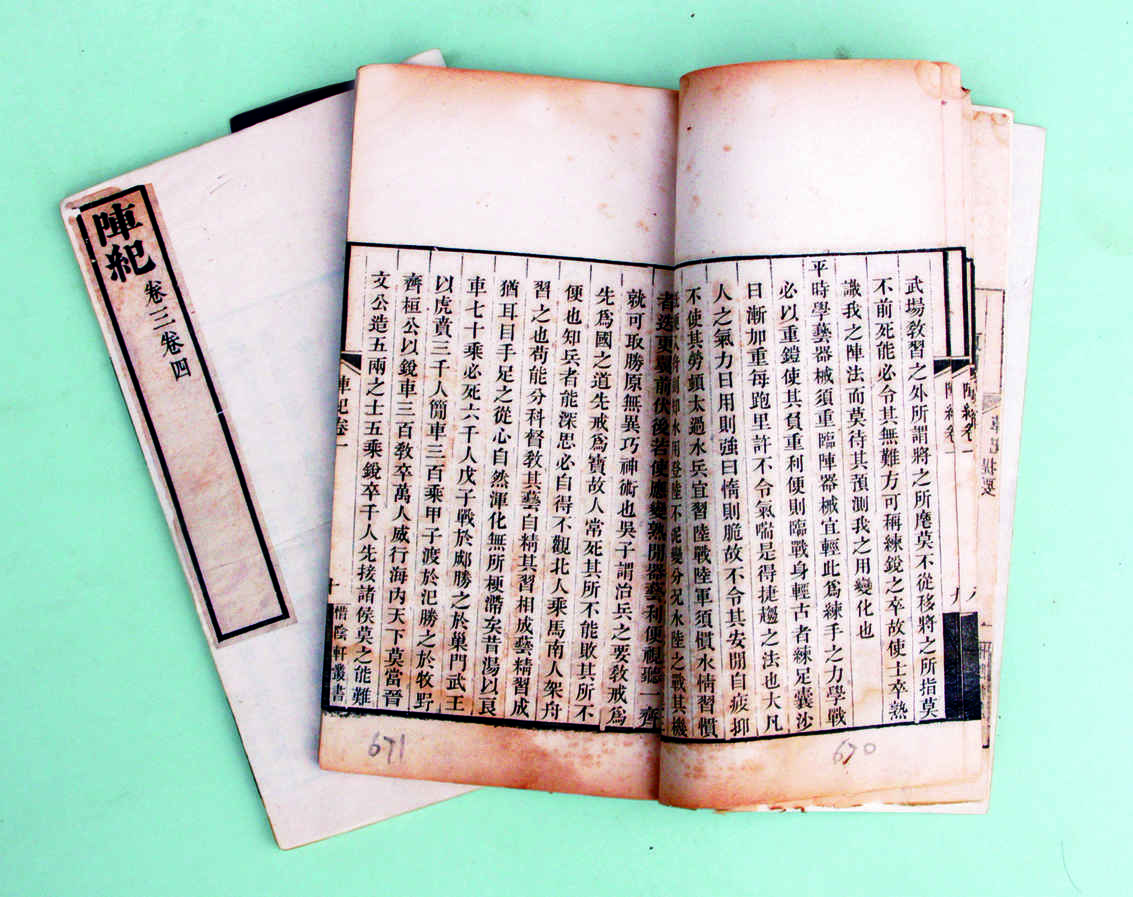 陣紀
卷三卷四
武場敎習之外所謂將之所麾莫不從移將之所指莫
不前死能必令其無難方可稱練銳之卒故使士卒熟
識我之陣法而莫待其預測我之用變化也
平時學藝器械須重臨陣器械宜輕此爲練手之力學戰
必以重鎧使其負重利便則臨戰身輕古者練足囊沙
日漸加重每跑里許不令氣喘是得捷趨之法也大凡
人之氣力日用則強日惰則脆故不令其安閒自疲抑
不使其勞頓太過水兵宜習陸戰陸軍須慣水情習慣
水用登陸不泥變分况水陸之戰其機
者迭更翼前伏後若使應變熟閒器藝利便視聽一齊
就可取勝原無異巧神術也吳子謂治兵之要敎戒爲
先爲國之道先戒爲寶故人常死其所不能敗其所不
便也知兵者能深思必自得不觀北人乘馬南人架舟
習之也苟能分科督敎其藝自精其習相成藝精習成
猶耳目手足之從心自然渾化無所梗滯矣昔湯以良
車七十乘必死六千人戊子戰於郕勝之於巢門武王
以虎賁三千人簡車三百乘甲子渡於汜勝之於牧野
齊桓公以銳車三百敎卒萬人威行海內天下莫當晉
文公造五兩之士五乘銳卒千人先接諸侯莫之能難
陣紀卷一
十
惜陰軒叢書
670
671